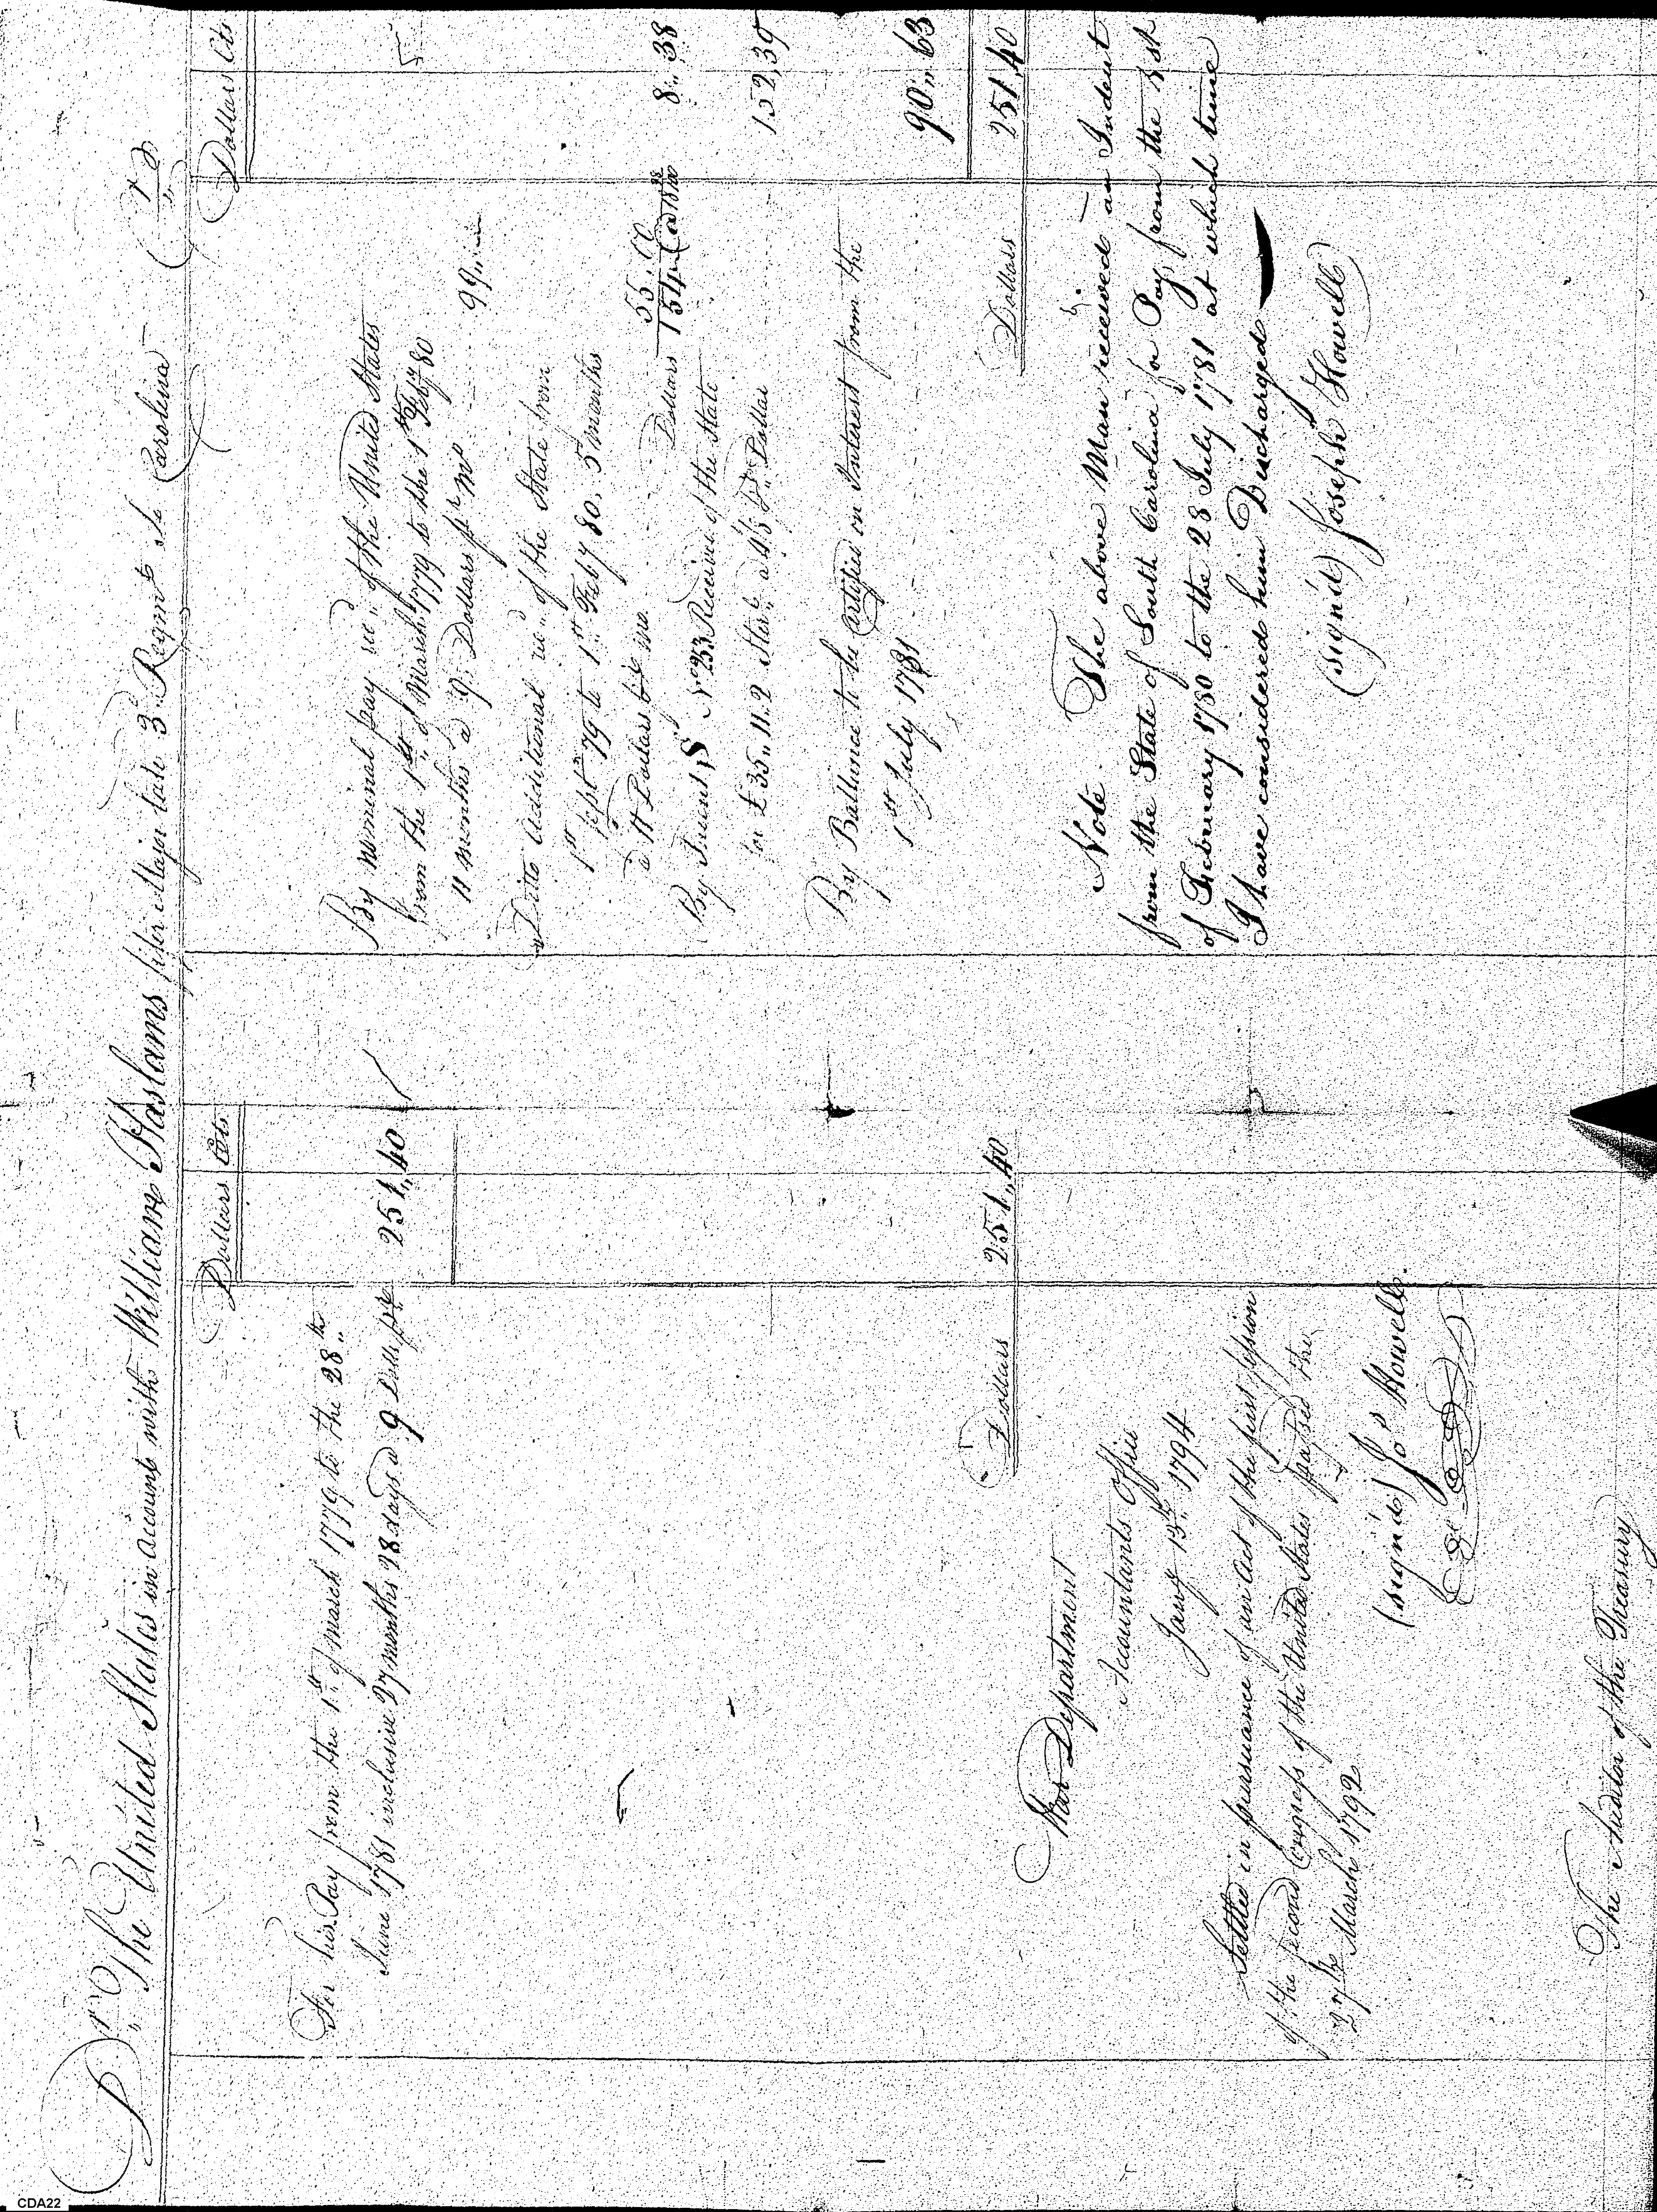 Dr. The United States in account with William Haslams fifer Major late 3d Regmt So Carolina Cr
Dollars Cts
For his Pay from the 1st of march 1779 to the 28th
June 1781 inclusive 27 months 28 days a 9 Dolls 251,,40
Dollars 251,,40
War Department
Accountants Office
Jany 13th 1794
Settled in pursuance of an Act of the first session
of the second Congress of the United States passed the
27th March 1792
(signed) Jos Howell
The Auditor of the Treasury
Dollars Cts
By nominal pay recd of the United States
from the 1st of March 1779 to the 1st Feby 80
11 months a 9 Dollars pr mo 99
Ditto additional recd of the State from
1st Sept 79 to 1st Feby 80, 5 months
a 11 Dollars mo 55
Dollars 154 8,,38
By Indent S No 233 Received of the State
for £35,,11,,2 Sterg a 4/8 Dollar 152,39
By Ballance to be Certified on Interest from the
1st July 1781 90,,63
Dollars 251,40
Note. The above Man received an Indent
from the State of South Carolina for Pay, from the 1st
of February 1780 to the 28 July 1781 at which time
I have considered him Discharged
(signed) Joseph Howell
CDA22